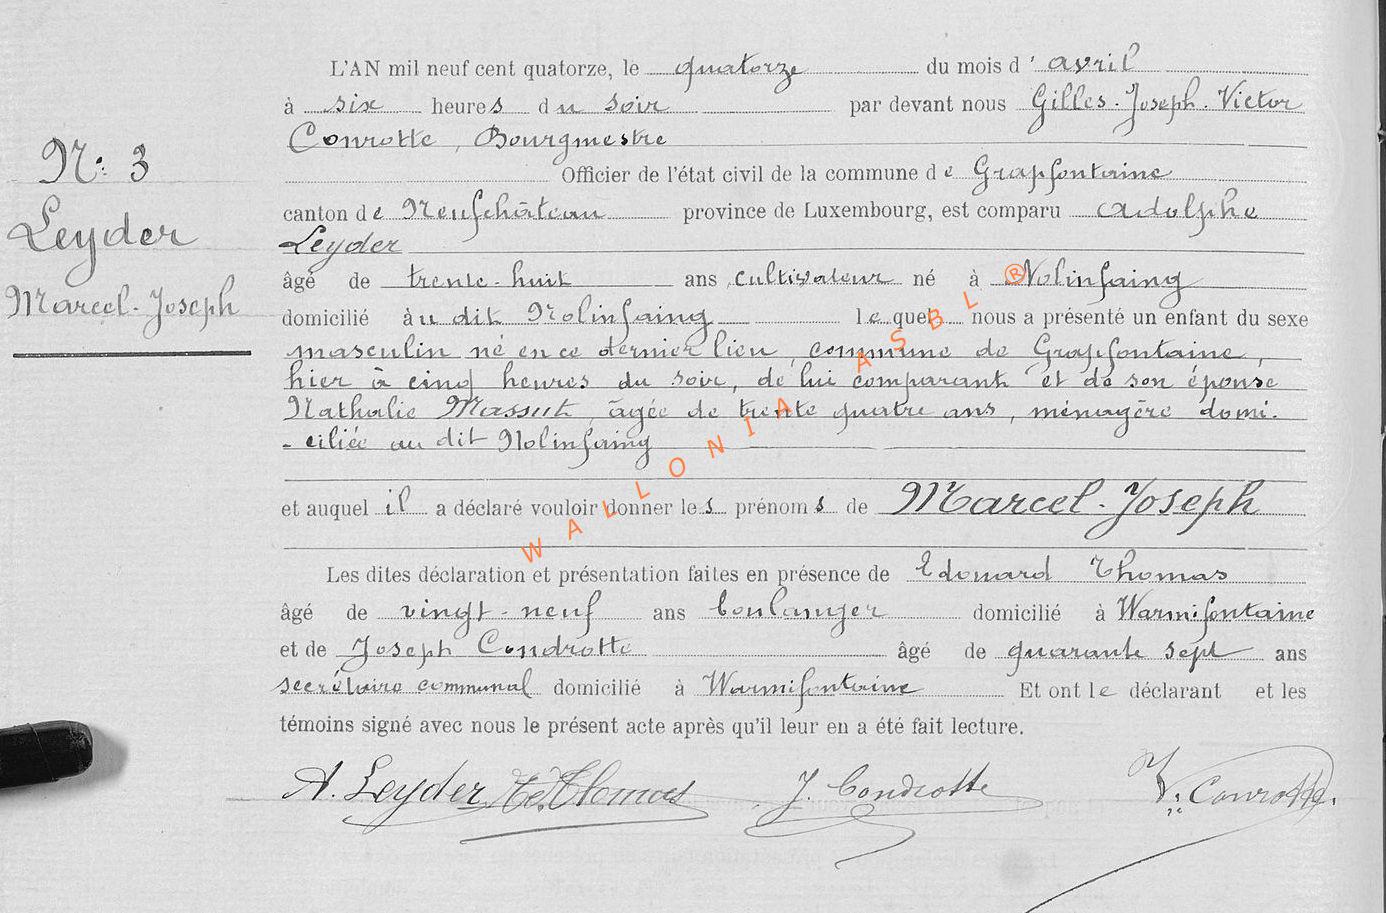 N.: 3
Leyder
Marcel-Joseph
L'AN mil neuf cent quatorze, le quatorze du mois d' avril
à six heures du soir par devant nous Gilles-Joseph-Victor
Conrotte, Bourgmestre
Officier de l'état civil de la commune de Grapfontaine
canton de Neufchâteau province de Luxembourg, est comparu Adolphe
Leyder
âgé de trente-huit ans cultivateur né à Nolinfaing
domicilié àu dit Nolinfaing lequel nous a présenté un enfant du sexe
masculin né en ce dernier lieu, commune de Grapfontaine,
hier à cinq heures du soir, de lui comparant et de son épouse
Nathalie Massut, âgée de trente quatre ans, ménagère domi-
-ciliée au dit Nolinfaing
et auquel il a déclaré vouloir donner les prénoms de Marcel-Joseph
Les dites déclaration et présentation faites en présence de Edouard Thomas
âgé de vingt-neuf ans boulanger domicilié à Warmifontaine
et de Joseph Condrotte âgé de quarante sept ans
secrétaire communal domicilié à Warmifontaine Et ont le déclarant et les
témoins signé avec nous le présent acte après qu'il leur en a été fait lecture.
A. Leyder Ed. Thomas J. Condrotte V. Conrotte.
WALLONIA ASBL ®